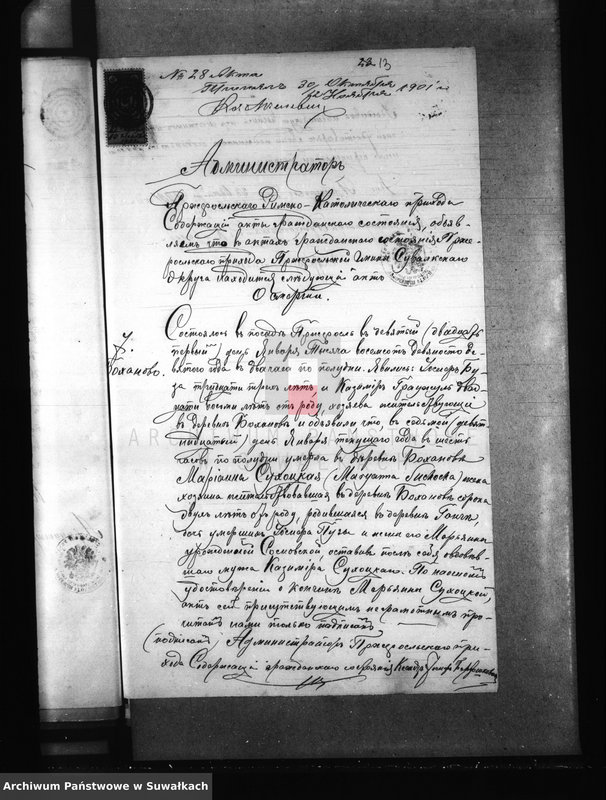 22 13
№ 28 Акта
30 Октября
12 Ноября 1901 г.
Администраторъ
Пржеросльскаго Римско-Католическаго прихода
Содержащій акты гражданскаго состоянія, объяв-
ляемъ что въ актахъ гражданскаго состоянія Прже-
росльскаго прихода Пржеросльской Гмины Сувалкскаго
Округа находится слѣдующій актъ
О смерти.
7.
Боханово.
Состоялось въ посадѣ Пржеросль въ девятый (двадцать
первый) день Января Тысяча восемьсотъ девяносто де-
вятаго года въ два часа по полудни. Явились: Іосифъ Бу-
за тридцати трехъ лѣтъ и Казиміръ двад-
цати восьми лѣтъ отъ роду, хозяева жительствующіе
въ деревнѣ Боханово и объявили что въ седьмой (девят-
надцатый) день Января текущаго года въ шесть
часовъ по полудни умерла въ деревнѣ Боханово
Маріанна Сухоцкая (Małgorzata Suchocka) жена
хозяина жительствовавшая въ деревнѣ Боханово сорока
двухъ лѣтъ отъ роду, родившаяся въ деревнѣ
дочь умершихъ Іосифа и жены его Марьянны
урожденной Сосновской, оставивъ послѣ себя овдовѣв-
шаго мужа Казиміра Сухоцкаго. По настоящемъ
удостовѣреніи о кончинѣ Марьянны Сухоцкой,
актъ сей присутствующимъ неграмотнымъ про-
читанъ нами только подписанъ
(подписалъ) Администраторъ Пржеросльскаго при-
хода Содержащій гражданскаго состоянія Ксендзъ Іосифъ
Archiwum Państwowe w Suwałkach